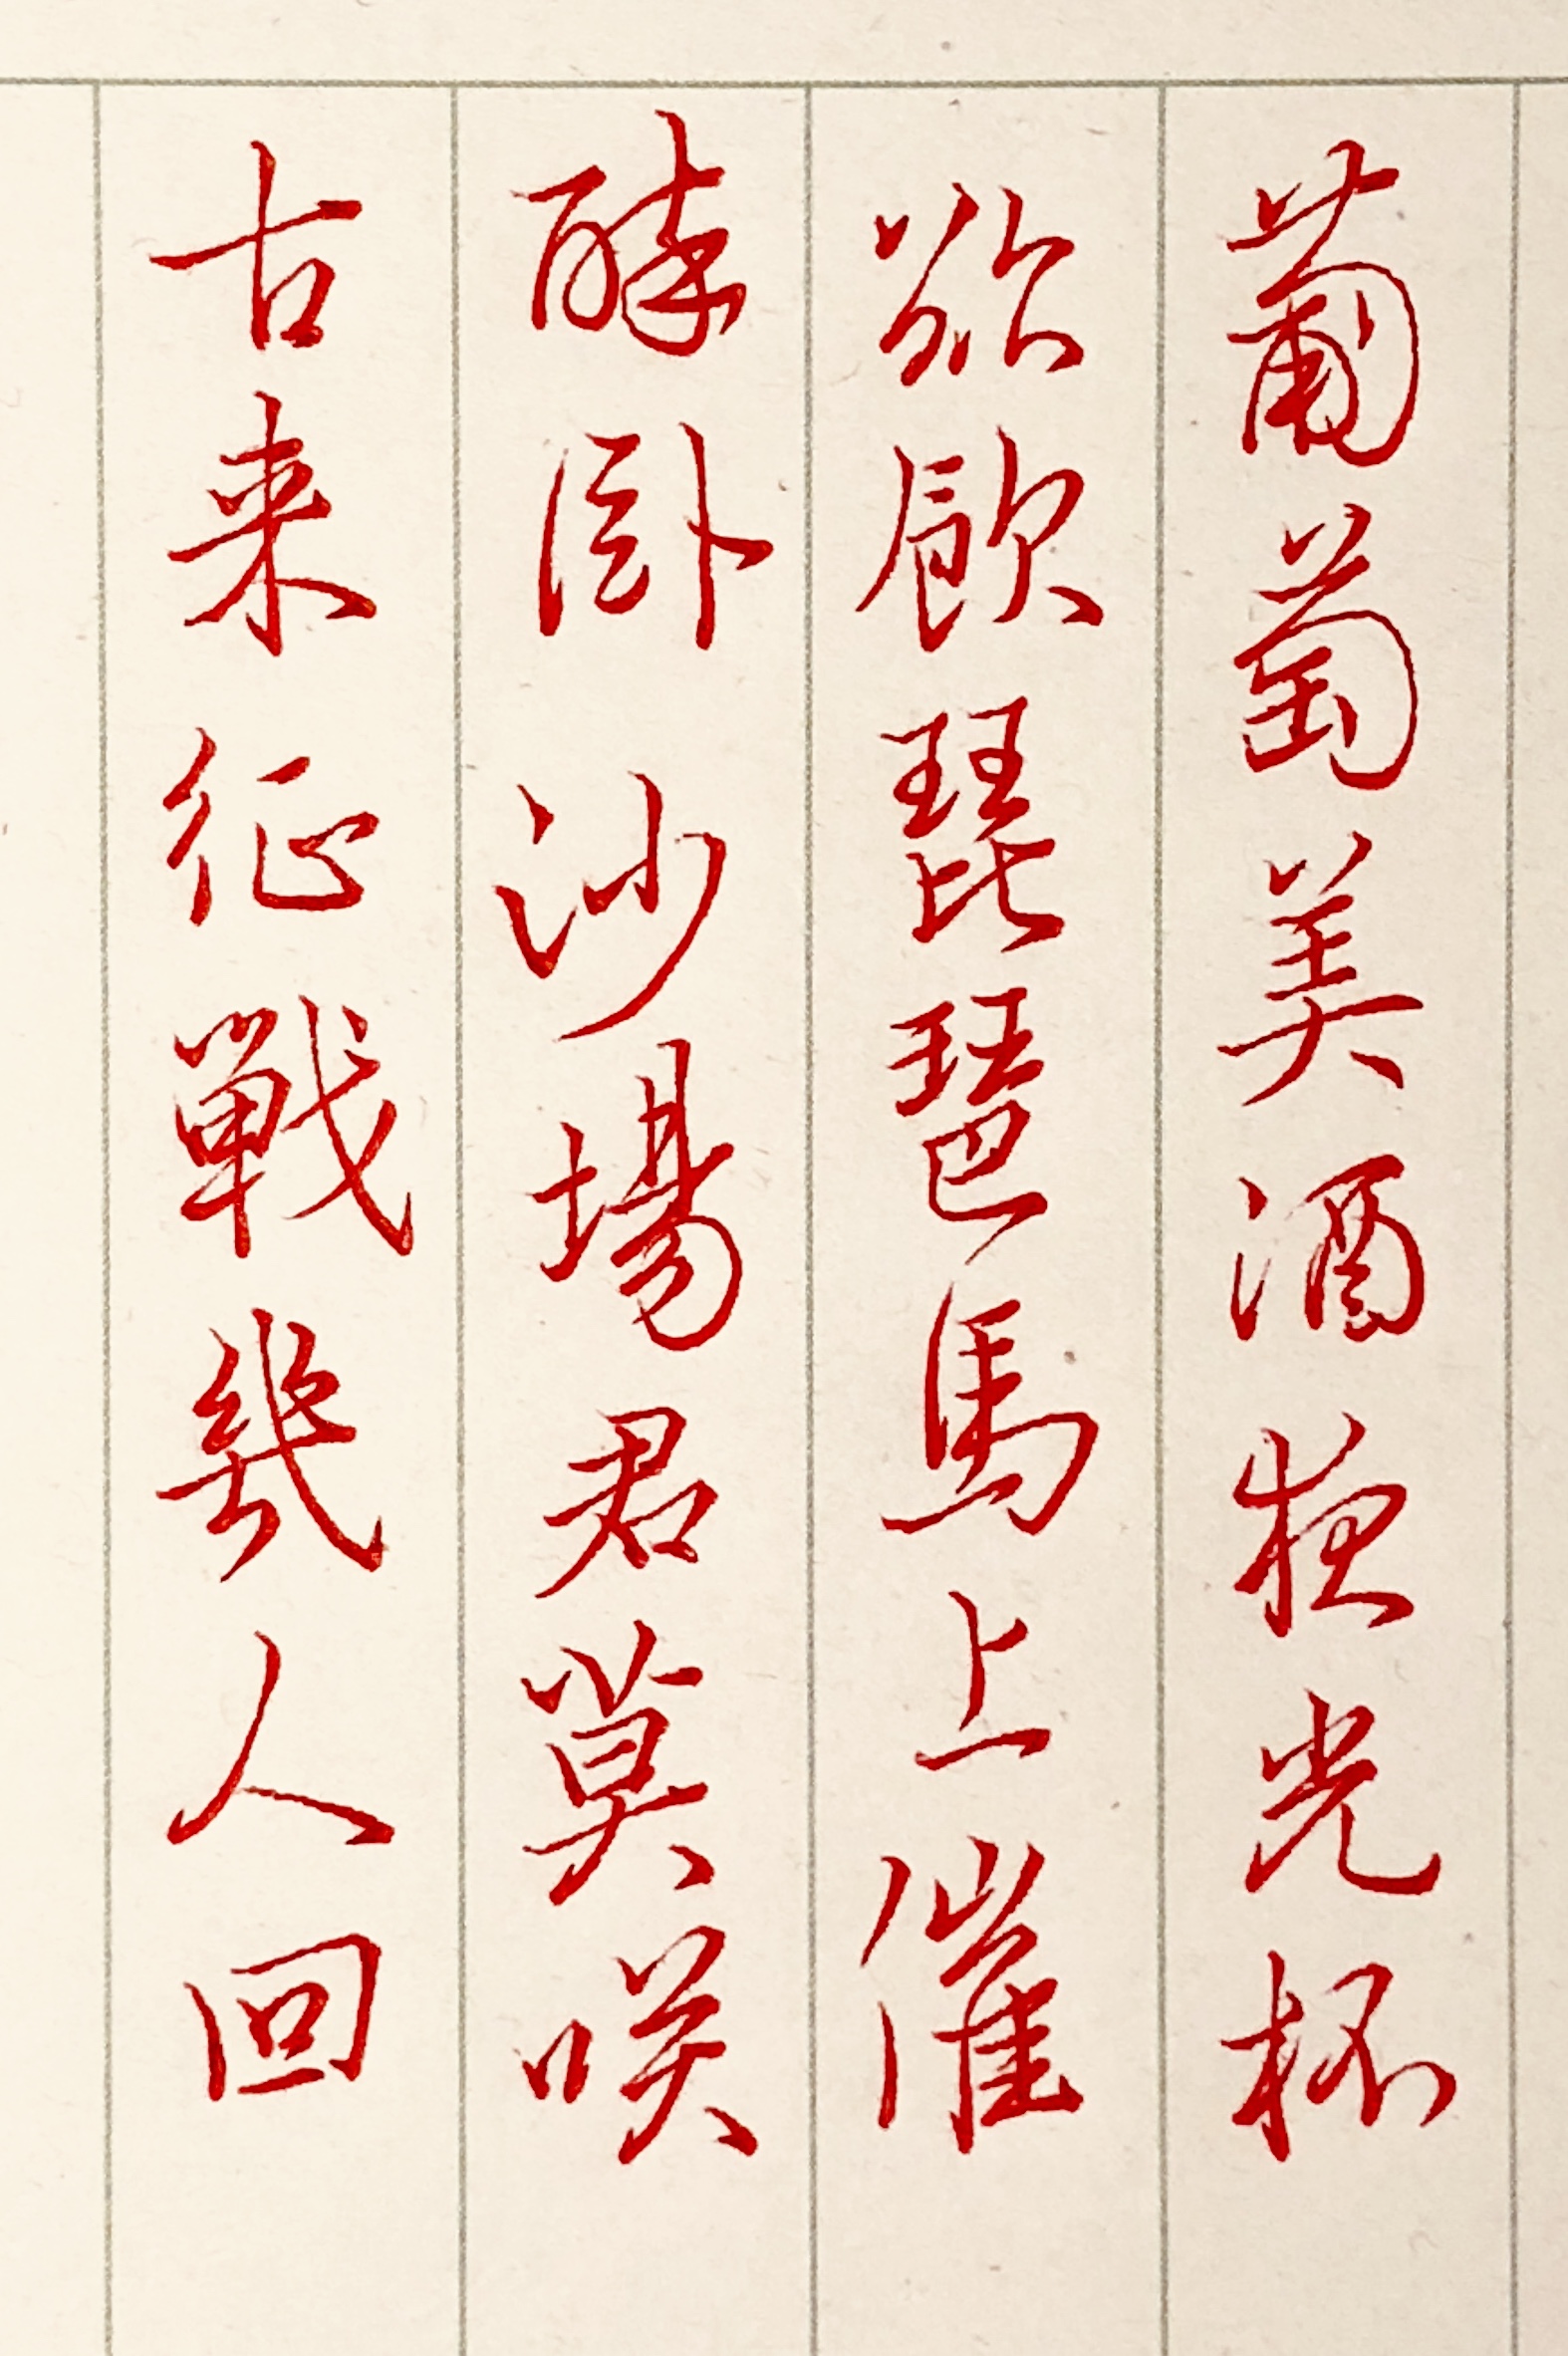 葡萄美酒夜光杯
欲飲琵琶馬上催
醉卧沙場君莫咲
古来征戰幾人回